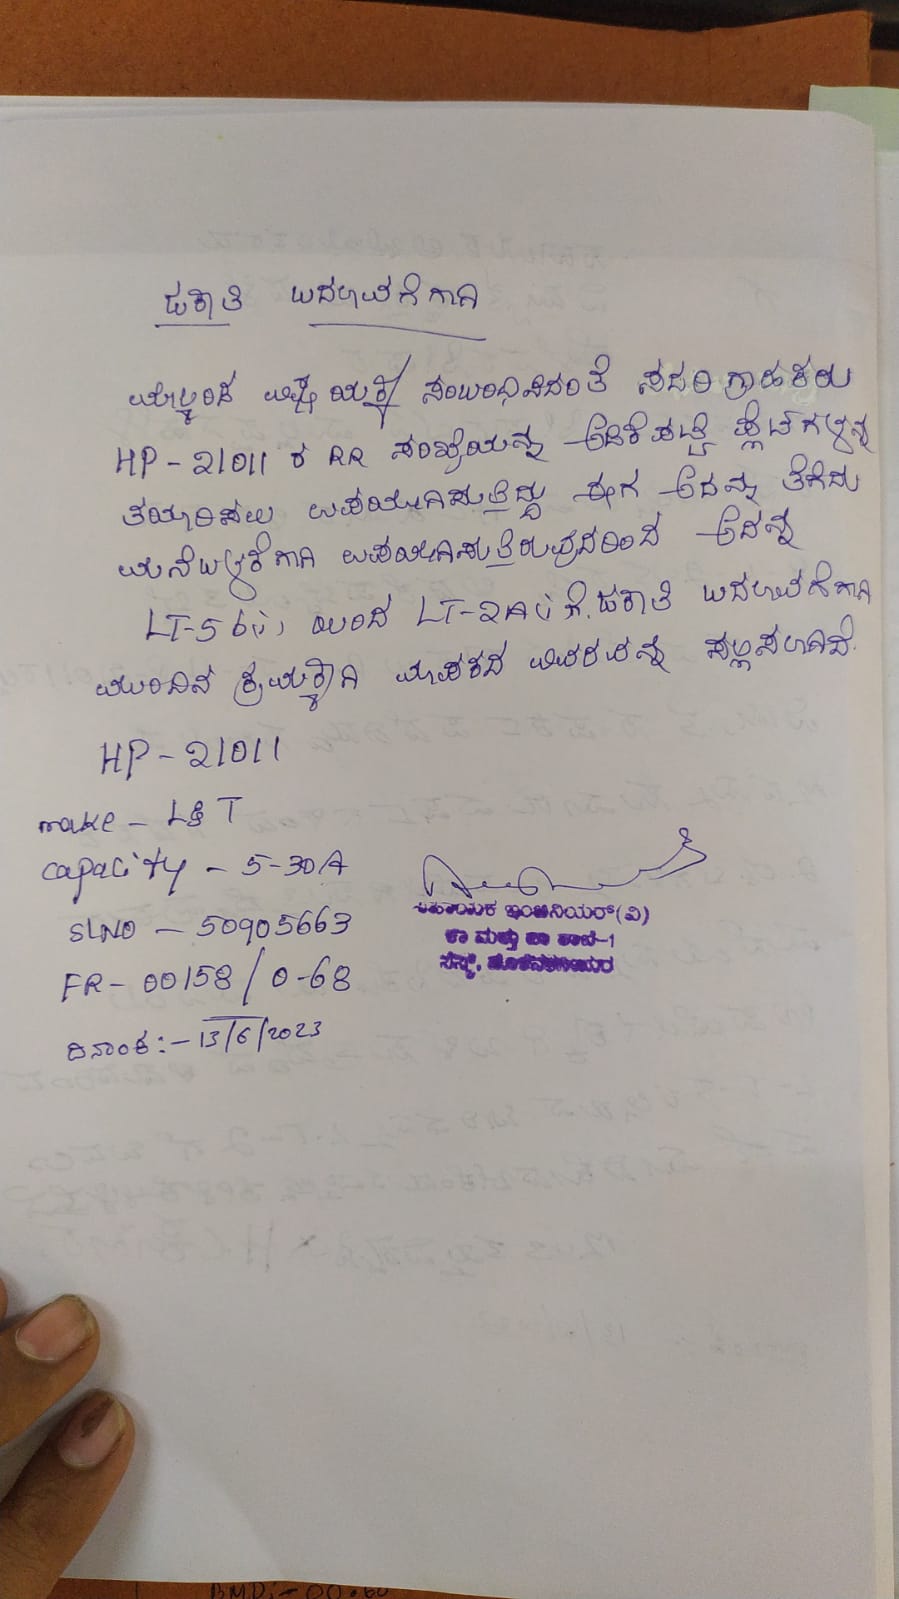 ಜಕಾತಿ ಬದಲಾವಣೆಗಾಗಿ
ಮೇಲ್ಕಂಡ ವಿಷಯಕ್ಕೆ ಸಂಬಂಧಿಸಿದಂತೆ ಸದರಿ ಗ್ರಾಹಕರು
HP-21011 ರ RR ಸಂಖ್ಯೆಯನ್ನು ಅಡಿಕೆ ಪಟ್ಟೆ ಪ್ಲೇಟ್‌ಗಳನ್ನು
ತಯಾರಿಸಲು ಉಪಯೋಗಿಸುತ್ತಿದ್ದು ಈಗ ಅದನ್ನು ತೆಗೆದು
ಮನೆ ಬಳಕೆಗಾಗಿ ಉಪಯೋಗಿಸುತ್ತಿರುವುದರಿಂದ ಅದನ್ನು
LT-5 b(i) ಯಿಂದ LT-2A(i) ಗೆ. ಜಕಾತಿ ಬದಲಾವಣೆಗಾಗಿ
ಮುಂದಿನ ಕ್ರಮಕ್ಕಾಗಿ ಮಾಪಕದ ವಿವರವನ್ನು ಸಲ್ಲಿಸಲಾಗಿದೆ.
HP-21011
make - L&T
capacity - 5-30A
SLNO - 50905663
FR- 00158/0-68
ದಿನಾಂಕ:- 13/6/2023
ಸಹಾಯಕ ಇಂಜಿನಿಯರ್(ವಿ)
ಕಾ ಮತ್ತು ಪಾ ಶಾಖೆ-1
ಸೆಸ್ಕ್,
BMD:- 00.60